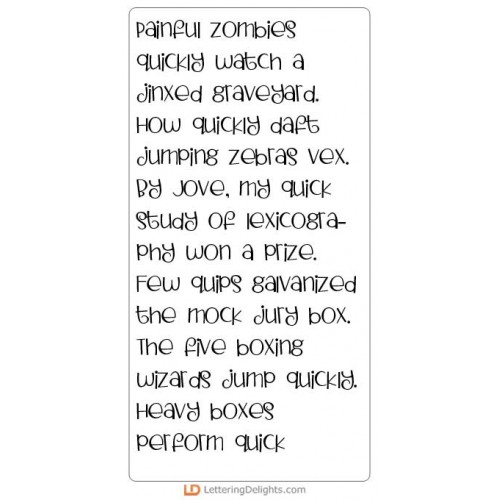 Painful zombies
quickly watch a
jinxed graveyard.
How quickly daft
jumping zebras vex.
By Jove, my quick
study of lexicogra-
phy won a prize.
Few quips galvanized
the mock jury box.
The five boxing
wizards jump quickly.
Heavy boxes
perform quick
LD LetteringDelights.com